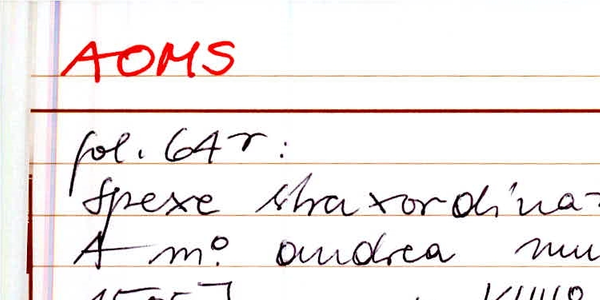 AOMS
fol. 64r:
Spexe straxordina-
A m° andrea